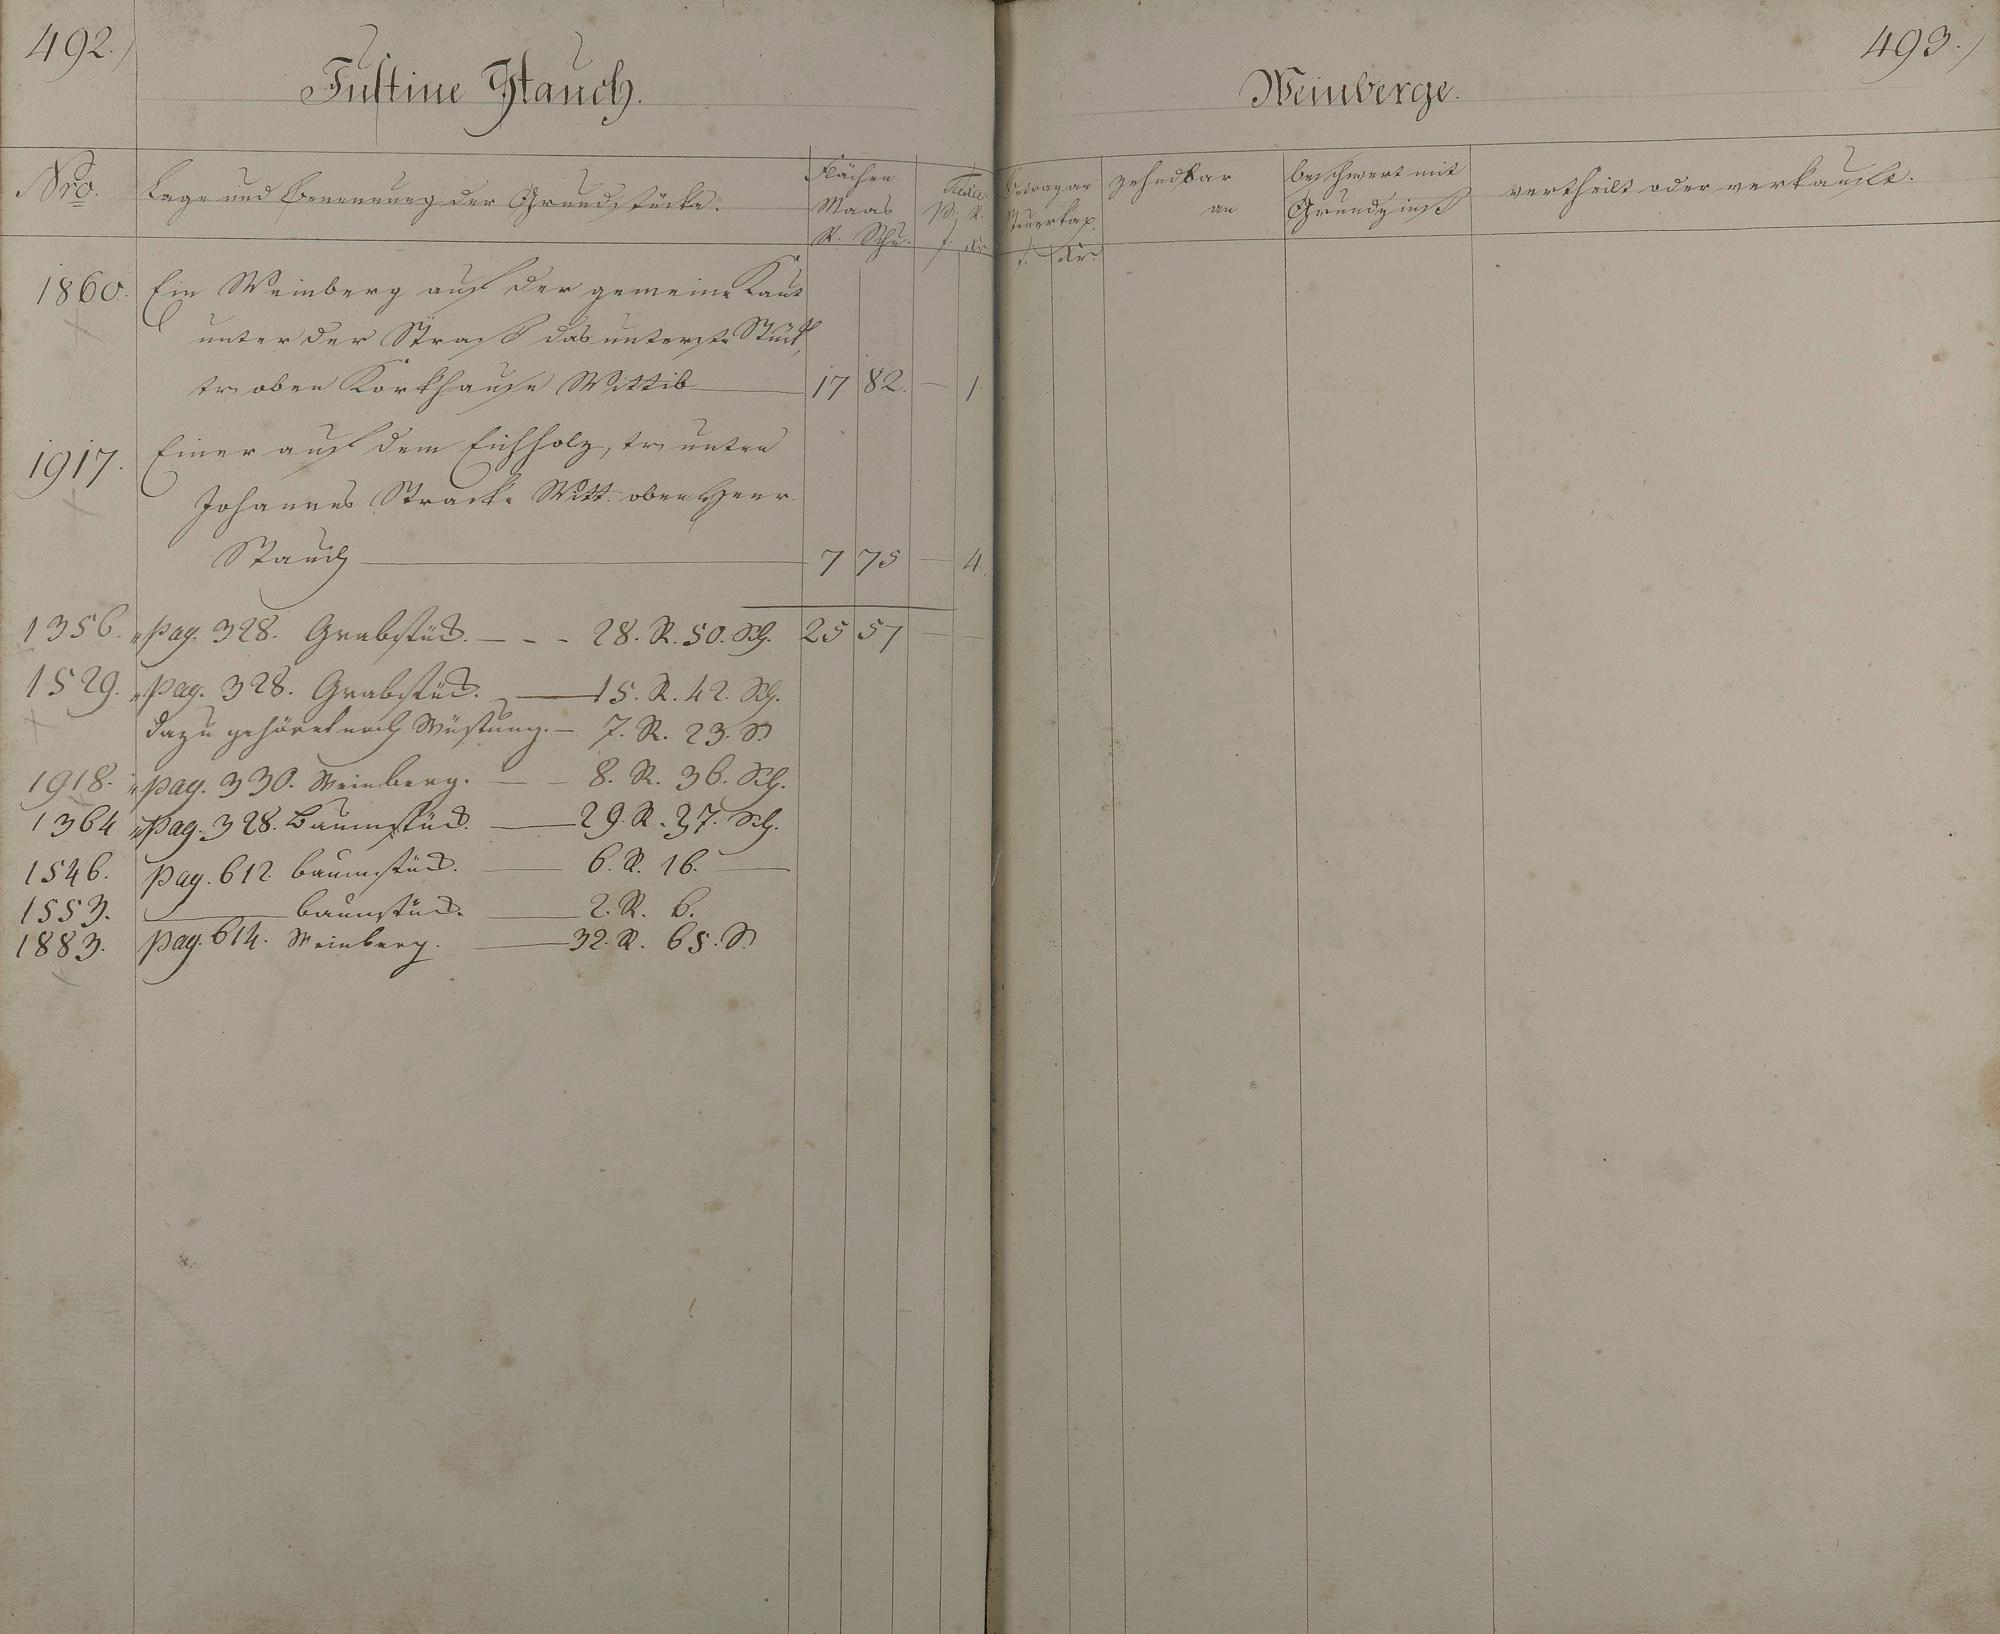 492.
Justine Stauch.
Nro.
Lage und Benennung der Grundstücke.
Flächen
Maas
R. Schu.
Taxa
p. R.
f. Kr.
1860. Ein Weinberg auf der gemeine Kaut
unter der Straß das unterste Stück,
tr. oben Korkhause Wittib 17 82. — 1.
1917. Einer auf dem Eichholz, tr. unten
Johannes Stracke Witt. oben Henr.
Stauch 7 75 — 4.
1356. " pag. 328. Grabstück. — 28. R. 50. Sch. 25 57 — —
1529. " pag. 328. Grabstück. — 15. R. 42. Sch.
dazu gehöret noch Wüstung. — 7. R. 23. S.
1918. " pag. 330. Weinberg. — 8. R. 36. Sch.
1364 " pag. 328. Baumstück. — 29. R. 37. Sch.
1546. pag. 612 Baumstück. — 6. R. 16. —
1553. — Baumstück. — 2. R. 6.
1883. pag. 614. Weinberg. — 32. R. 65. S.
493.
Weinberge.
Betrag an
Steuerkap.
f. Kr.
zehendbar
an
beschwert mit
Grundzinß
vertheilt oder verkauft.